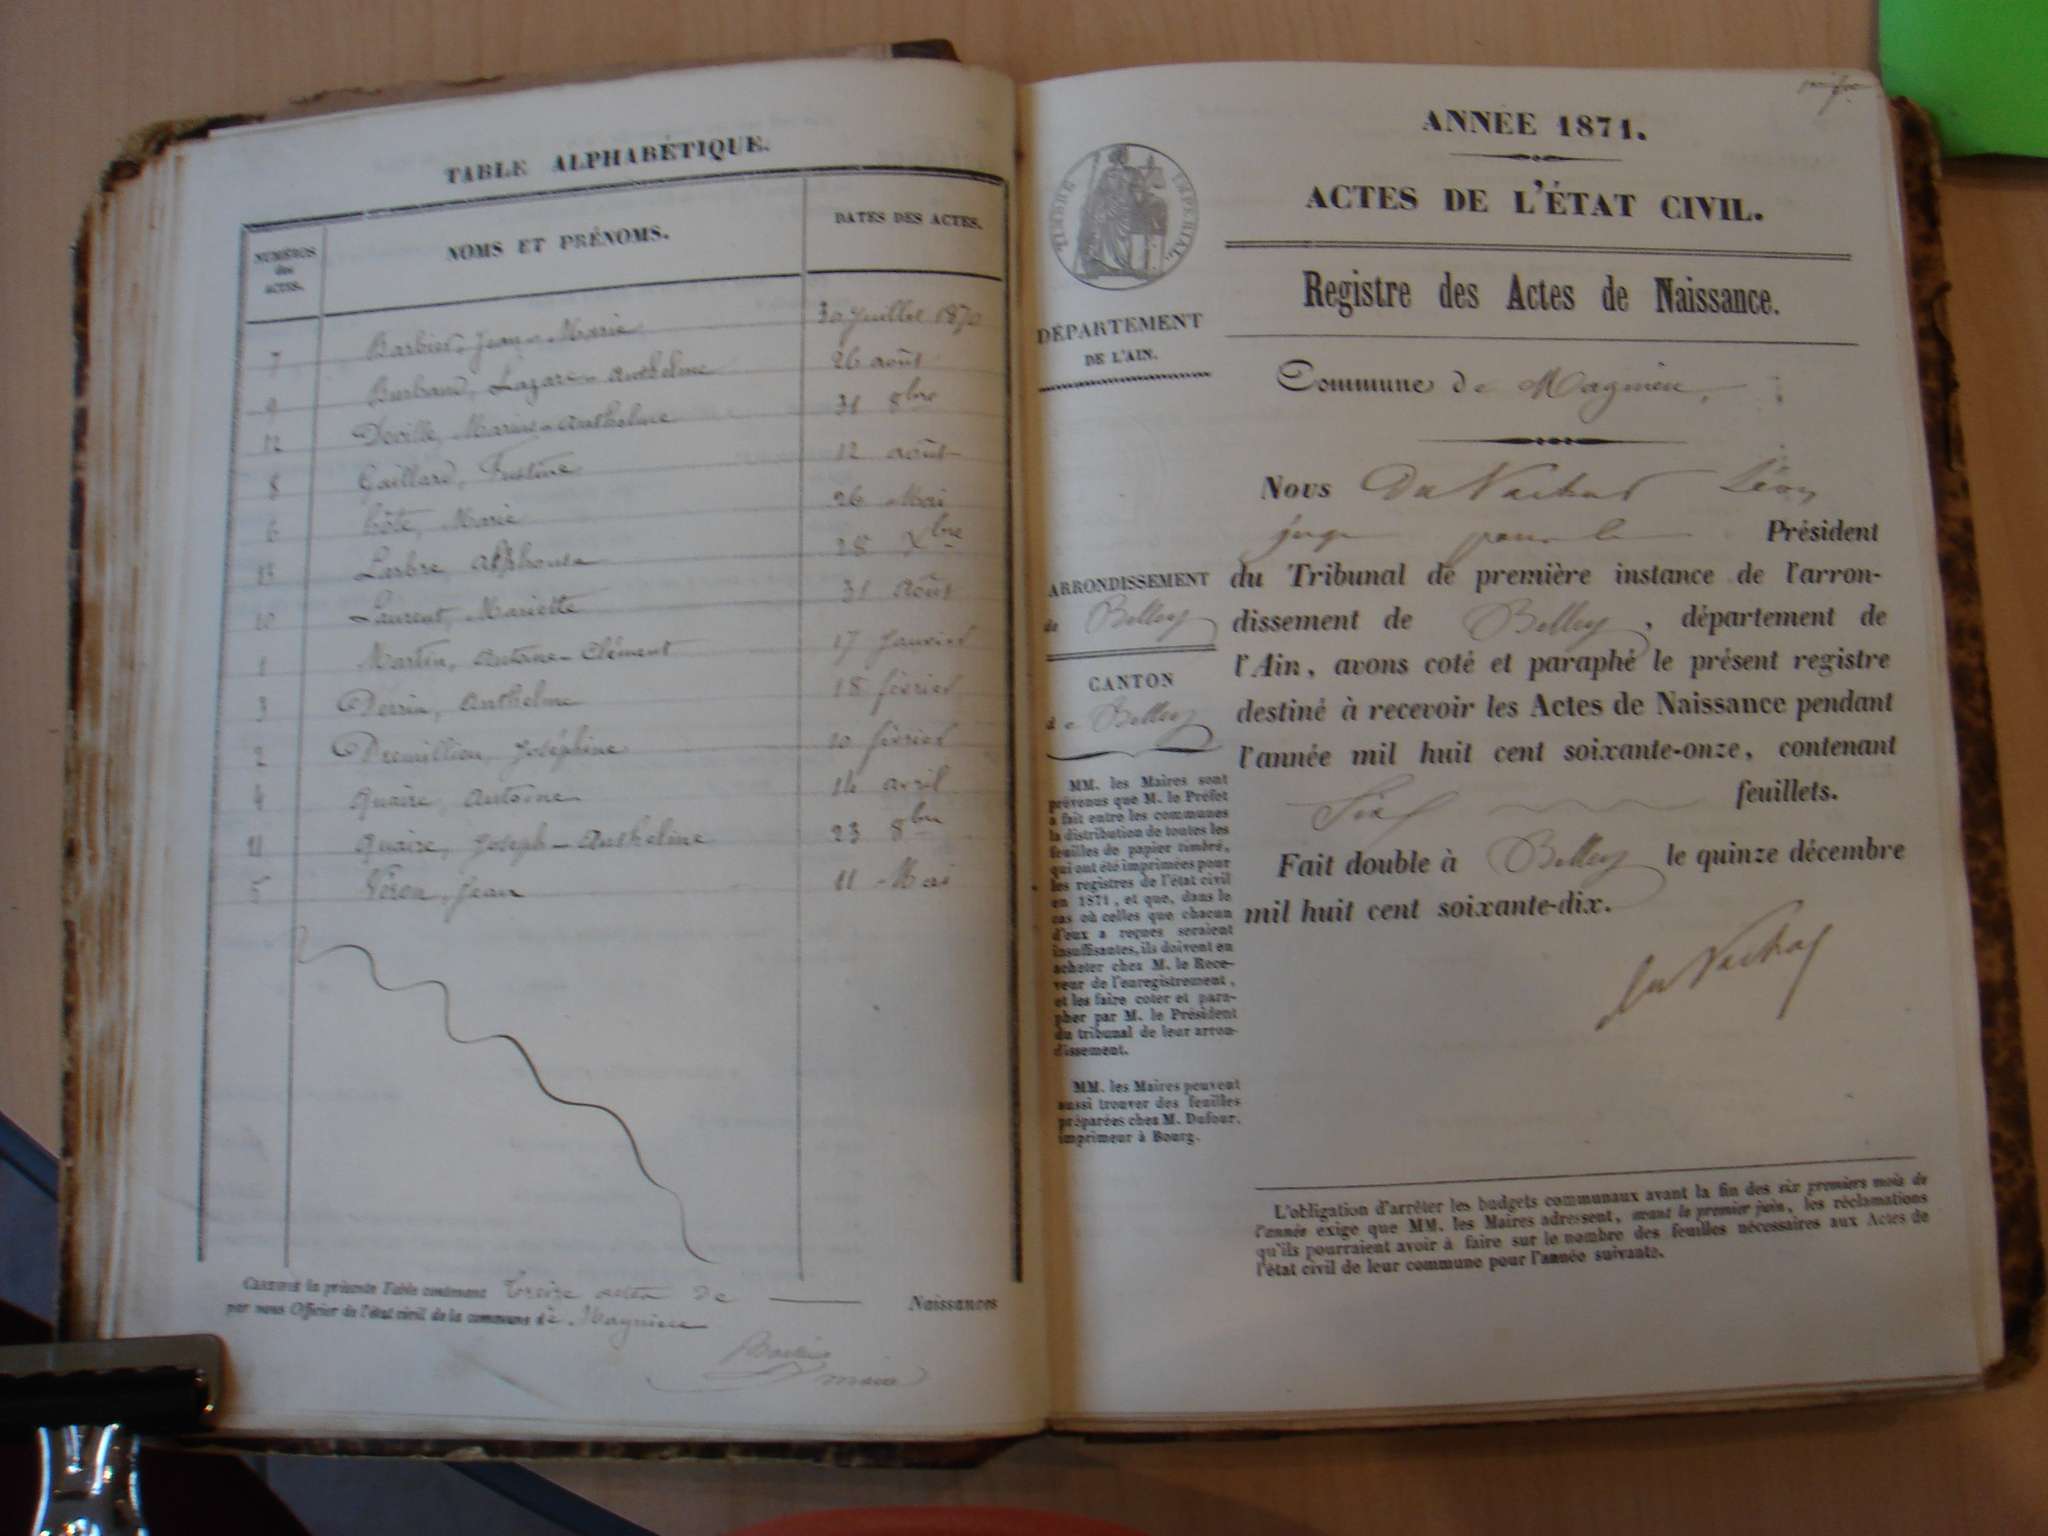 TABLE ALPHABÉTIQUE.
NUMÉROS des ACTES. NOMS ET PRÉNOMS. DATES DES ACTES.
7 Barbier, Jean-Marie 30 juillet 1870
9 Lazare-Anthelme 26 août
12 Deville, Marius-Anthelme 31 8bre
8 Gaillard, Justine 12 août
6 Côte, Marie 26 Mai
13 Larbre Alphonse 28 Xbre
10 Laurent, Mariette 31 Août
1 Martin, Antoine-Clément 17 Janvier
3 Perrin, Anthelme 18 février
2 Premillieu, Joséphine 10 février
4 Quaire, Antoine 14 avril
11 Quaire, Joseph-Anthelme 23 8bre
5 Jean 11 Mai
CERTIFIÉ la présente Table contenant treize actes de Naissances
par nous Officier de l'état civil de la commune de Magnieu
maire
ANNÉE 1871.
ACTES DE L'ÉTAT CIVIL.
TIMBRE IMPÉRIAL
Registre des Actes de Naissance.
DÉPARTEMENT
DE L'AIN.
Commune de Magnieu,
Nous Du Vachat Léon
juge pour le Président
du Tribunal de première instance de l'arron-
dissement de Belley, département de
l'Ain, avons coté et paraphé le présent registre
destiné à recevoir les Actes de Naissance pendant
l'année mil huit cent soixante-onze, contenant
Six feuillets.
Fait double à Belley le quinze décembre
mil huit cent soixante-dix.
du Vachat
ARRONDISSEMENT
de Belley
CANTON
de Belley
MM. les Maires sont
prévenus que M. le Préfet
a fait entre les communes
la distribution de toutes les
feuilles de papier timbré,
qui ont été imprimées pour
les registres de l'état civil
en 1871, et que, dans le
cas où celles que chacun
d'eux a reçues seraient
insuffisantes, ils doivent en
acheter chez M. le Rece-
veur de l'enregistrement,
et les faire coter et para-
pher par M. le Président
du tribunal de leur arron-
dissement.
MM. les Maires peuvent
aussi trouver des feuilles
préparées chez M. Dufour,
imprimeur à Bourg.
L'obligation d'arrêter les budgets communaux avant la fin des six premiers mois de
l'année exige que MM. les Maires adressent, avant le premier juin, les réclamations
qu'ils pourraient avoir à faire sur le nombre des feuilles nécessaires aux Actes de
l'état civil de leur commune pour l'année suivante.